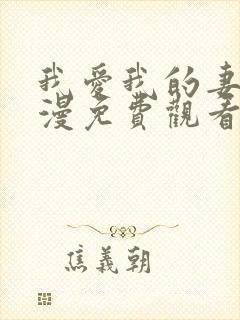 我愛我的妻
漫免費觀看
焦義朝